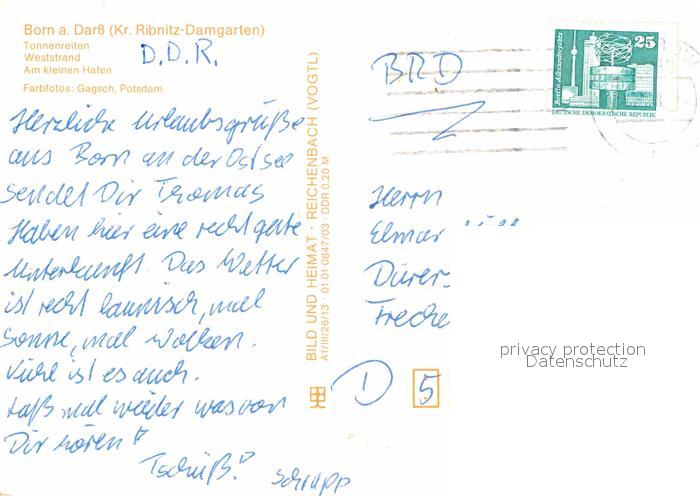 Born a. Darß (Kr. Ribnitz-Damgarten)
Tonnenreiten
Weststrand
Am kleinen Hafen
Farbfotos: Gagsch, Potsdam
D.D.R.
Herzliche Urlaubsgrüße
aus Born an der Ostsee
sendet Dir Thomas
Haben hier eine recht gute
Unterkunft. Das Wetter
ist recht launisch, mal
Sonne, mal Wolken.
Kühl ist es auch.
Laß mal wieder was von
Dir hören!
Tschüß!
BILD UND HEIMAT · REICHENBACH (VOGTL)
A1/III/26/13 · 01 01 0847/03 · DDR 0,20 M
25
Berlin, Alexanderplatz
DEUTSCHE DEMOKRATISCHE REPUBLIK
BRD
Herrn
Elmar
Dürer-
Freche
D 5
privacy protection
Datenschutz